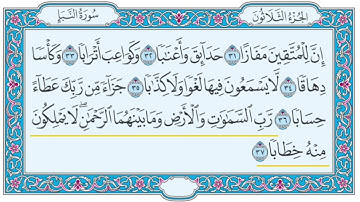 الجزء الثلاثون
سورة النبإ
إِنَّ لِلْمُتَّقِينَ مَفَازًا ٣١ حَدَآئِقَ وَأَعْنَٰبًا ٣٢ وَكَوَاعِبَ أَتْرَابًا ٣٣ وَكَأْسًا
دِهَاقًا ٣٤ لَّا يَسْمَعُونَ فِيهَا لَغْوًا وَلَا كِذَّٰبًا ٣٥ جَزَآءً مِّن رَّبِّكَ عَطَآءً
حِسَابًا ٣٦ رَّبِّ ٱلسَّمَٰوَٰتِ وَٱلْأَرْضِ وَمَا بَيْنَهُمَا ٱلرَّحْمَٰنِ ۖ لَا يَمْلِكُونَ
مِنْهُ خِطَابًا ٣٧